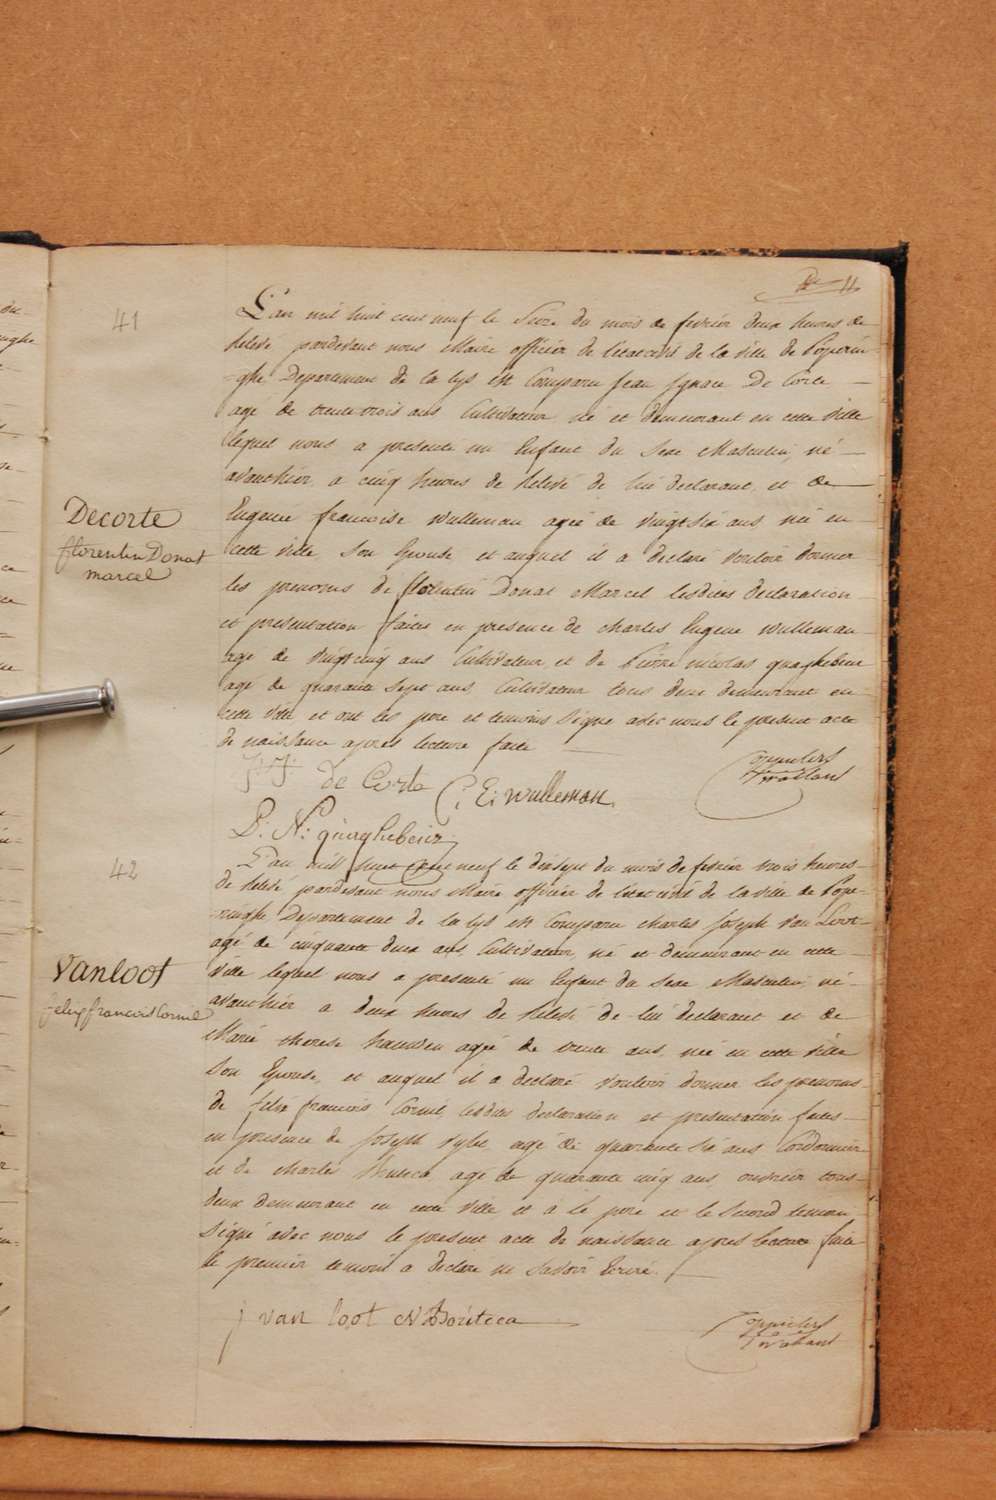 11
41
L'an mil huit cent neuf le Seize du mois de fevrier deux heures de
Relevé pardevant nous Maire officier de l'etat civil de la ville de Poperin-
-ghe Departement de la Lys est Comparu Jean Ignace De Corte
agé de trente trois ans Cultivateur né et demeurant en cette ville
lequel nous a presenté un Enfant du Sexe Masculin, né
avanthier a cinq heures de Relevé de lui declarant et de
Eugenie francoise Wulleman agée de vingt Six ans née en
cette ville Son Epouse, et auquel il a declaré vouloir donner
les prenoms de florentin Donat Marcel lesdites declaration
et presentation faites en presence de charles Eugene Wulleman
agé de vingt cinq ans Cultivateur et de Pierre nicolas quaghebeur
agé de quarante Sept ans Cultivateur tous deux demeurant en
cette ville et ont les pere et temoins Signé avec nous le present acte
de naissance apres lecture faite
Decorte
florentin Donat
marcel
J: J: de Corte C: E: Wulleman
P: N: quaghebeur
42
L'an mil huit cent neuf le dixsept du mois de fevrier trois heures
de Relevé pardevant nous Maire officier de l'etat civil de la ville de Pope-
-ringhe Departement de la Lys est Comparu charles Joseph Van Loot
agé de cinquante deux ans, Cultivateur, né et demeurant en cette
ville lequel nous a presenté un Enfant du Sexe Masculin, né
avanthier a deux heures de Relevé de lui declarant et de
Marie therese agée de trente ans, née en cette ville
Son Epouse, et auquel il a declaré vouloir donner les prenoms
de felix francois Cornil lesdites declaration et presentation faites
en presence de Joseph agé de quarante Six ans Cordonnier
et de charles agé de quarante cinq ans ouvrier tous
deux demeurant en cette ville et a le pere et le Second temoin
Signé avec nous le present acte de naissance apres lecture faite
le premier temoin a declaré ne Savoir Ecrire.
Vanloot
felix francois Cornil
j van loot